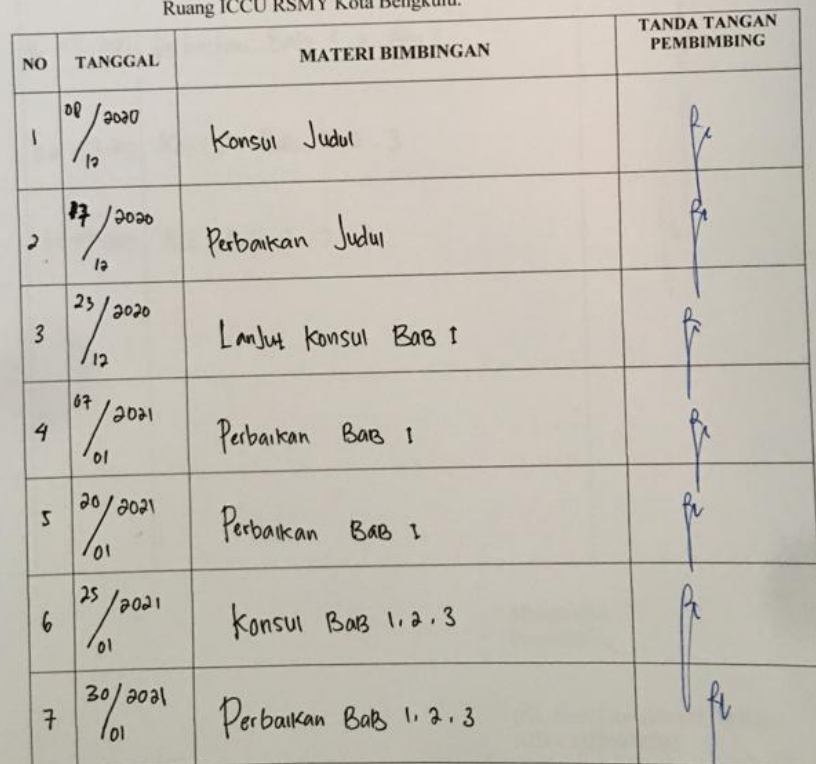 Ruang ICCU RSMY Kota Bengkulu.
NO TANGGAL MATERI BIMBINGAN TANDA TANGAN PEMBIMBING
1 08/12 2020 Konsul Judul
2 17/12 2020 Perbaikan Judul
3 23/12 2020 Lanjut Konsul BAB I
4 07/01 2021 Perbaikan BAB 1
5 20/01 2021 Perbaikan BAB I
6 25/01 2021 Konsul BAB 1, 2, 3
7 30/01 2021 Perbaikan BAB 1, 2, 3